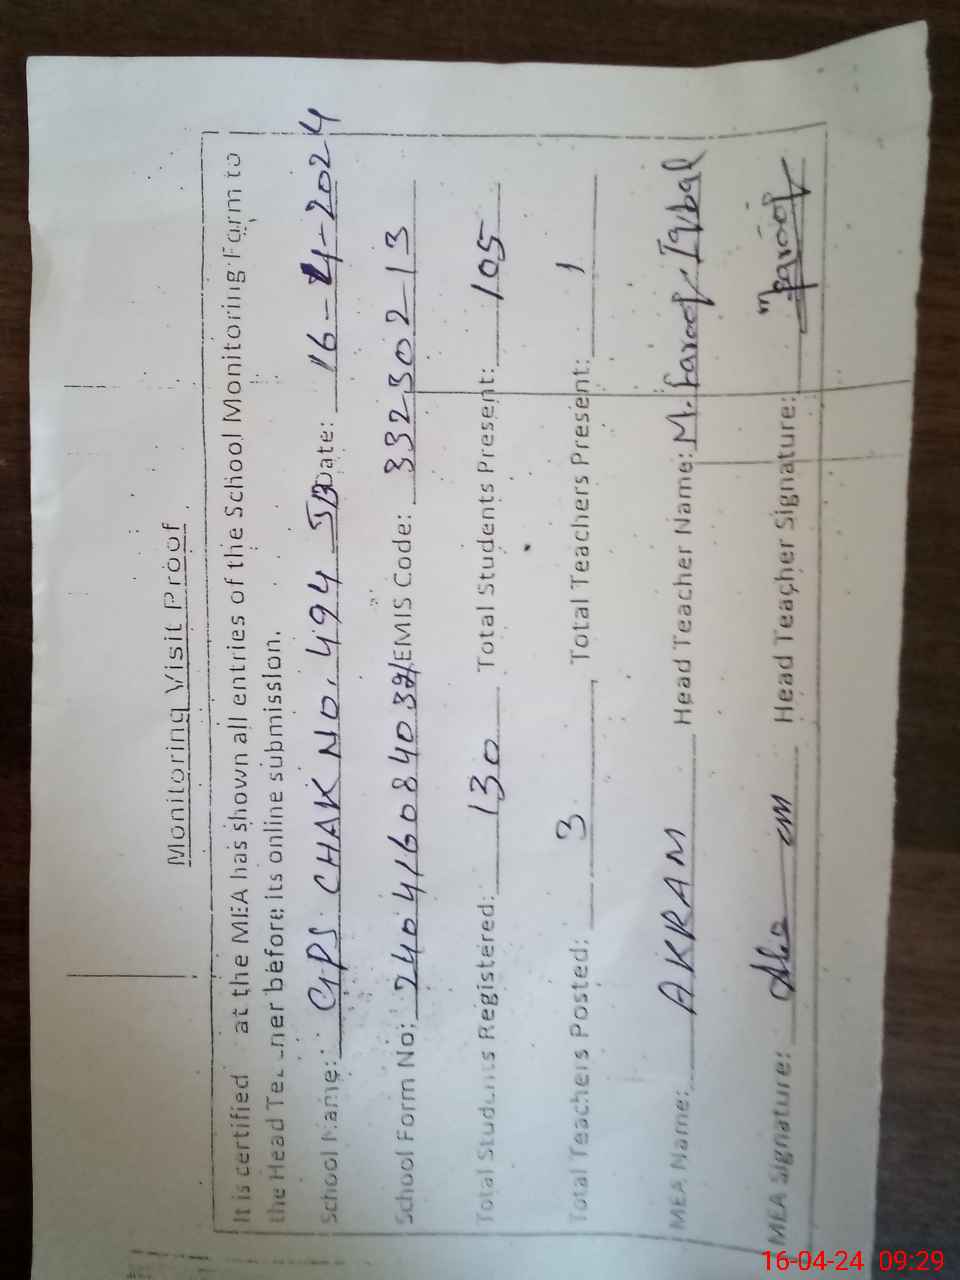 Monitoring Visit Proof
It is certified at the MEA has shown all entries of the School Monitoring Form to
the Head Te ner before its online submission.
School Name: GPS CHAK NO. 494 JB Date: 16-4-2024
School Form No: EMIS Code: 33230213
Total Students Registered: 130 Total Students Present: 105
Total Teachers Posted: 3 Total Teachers Present: 1
MEA Name: AKRAM Head Teacher Name: M. Farooq Iqbal
MEA Signature: Head Teacher Signature: M Farooq
16-04-24 09:29